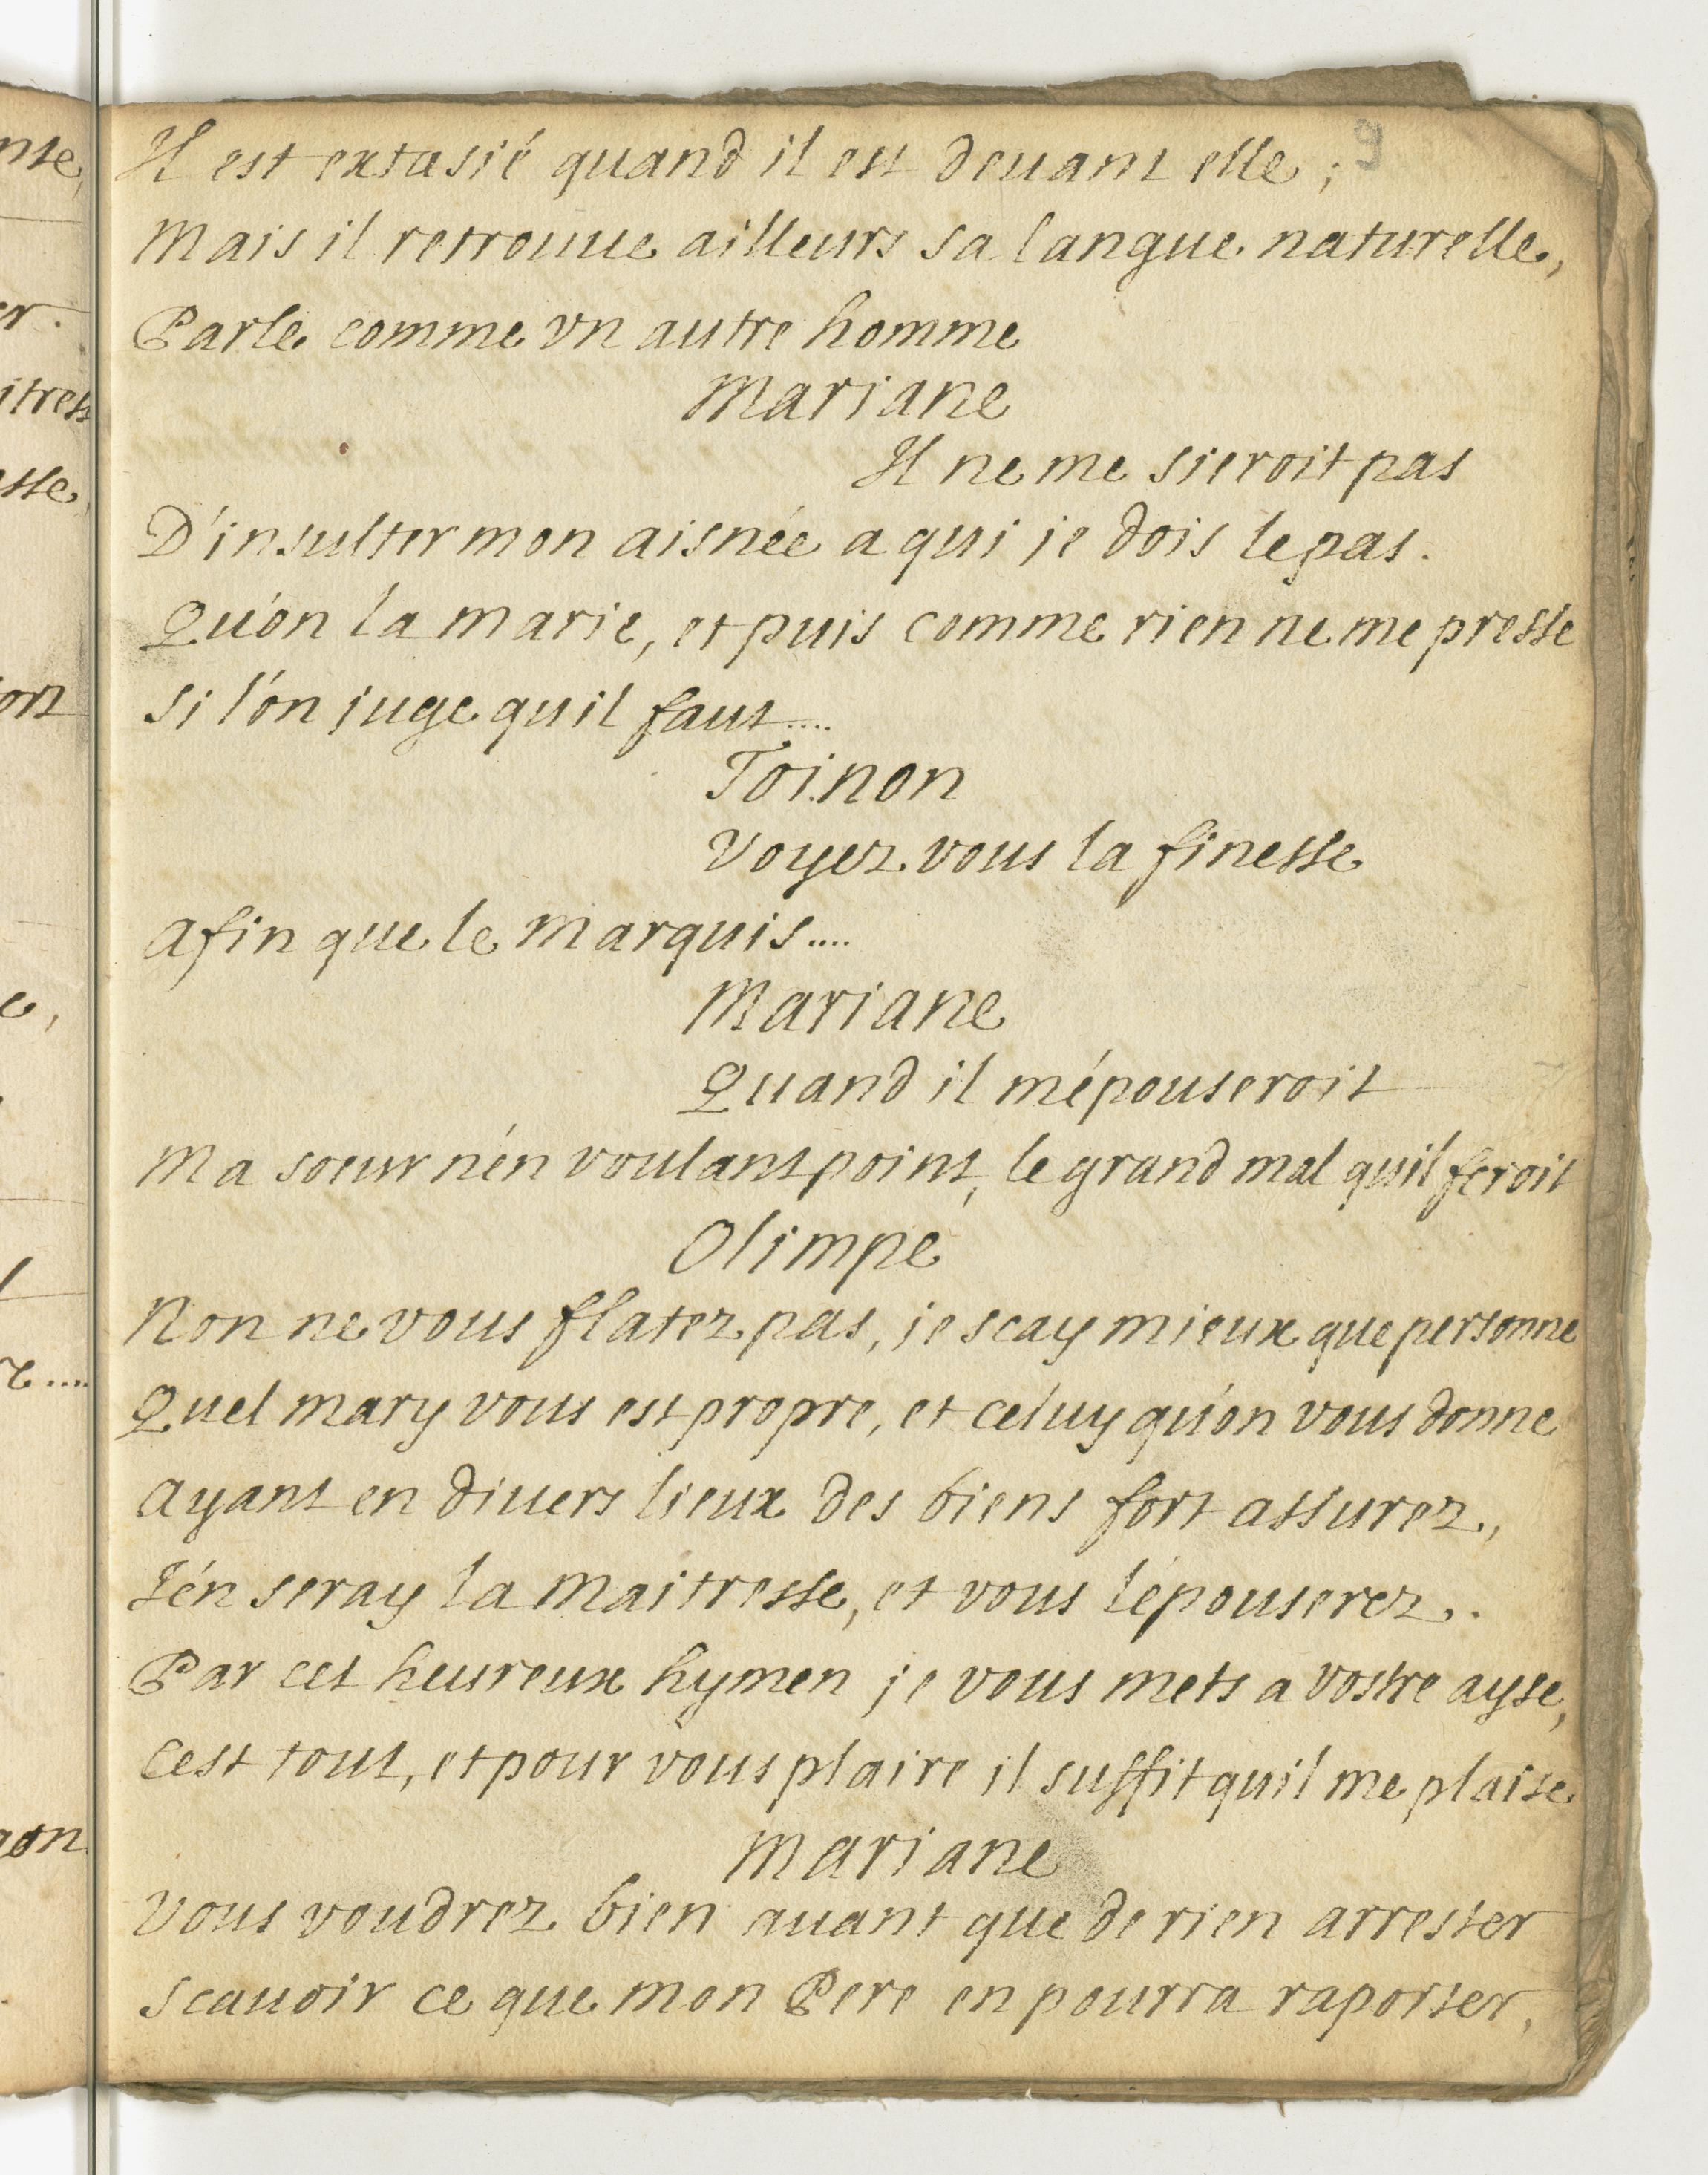 9
Il est extasié quand il est deuant elle ;
Mais il retrouue ailleurs sa langue naturelle,
Parle comme vn autre homme
Mariane
Il ne me sieroit pas
D'insulter mon aisnée a qui je dois le pas.
Qu'on la marie, et puis comme rien ne me presse
Si l'on juge quil faut....
Toinon
Voyez vous la finesse
Afin que le Marquis....
Mariane
Quand il m'épouseroit
Ma soeur n'en voulant point, le grand mal quil feroit
Olimpe
Non ne vous flatez pas, je scay mieux que personne
Quel mary vous est propre, et celuy qu'on vous donne
Ayant en diuers lieux des biens fort assurez,
J'en seray la Maitresse, et vous l'épouserez.
Par cet heureux hymen je vous mets a vostre ayse,
Cest tout, et pour vous plaire il suffit quil me plaise
Mariane
Vous voudrez bien auant que de rien arrester
Scauoir ce que mon Pere en pourra raporter,